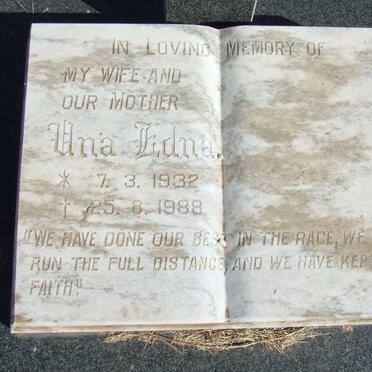 In Loving Memory of
my wife and
our Mother
Una Edna.
* 7. 3. 1932
† 25. 8. 1988
"We have done our best in the race, we
run the full distance, and we have kep
faith."